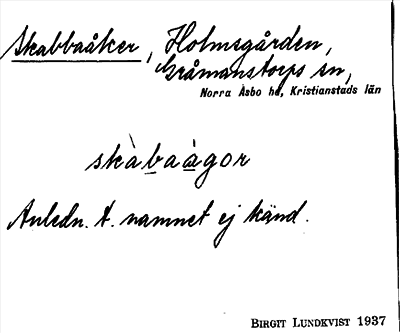 Skabbaåker, Holmsgården,
Gråmanstorps sn,
Norra Åsbo hd, Kristianstads län
skàbaàgor
Anledn. t. namnet ej känd.
BIRGIT LUNDKVIST 1937